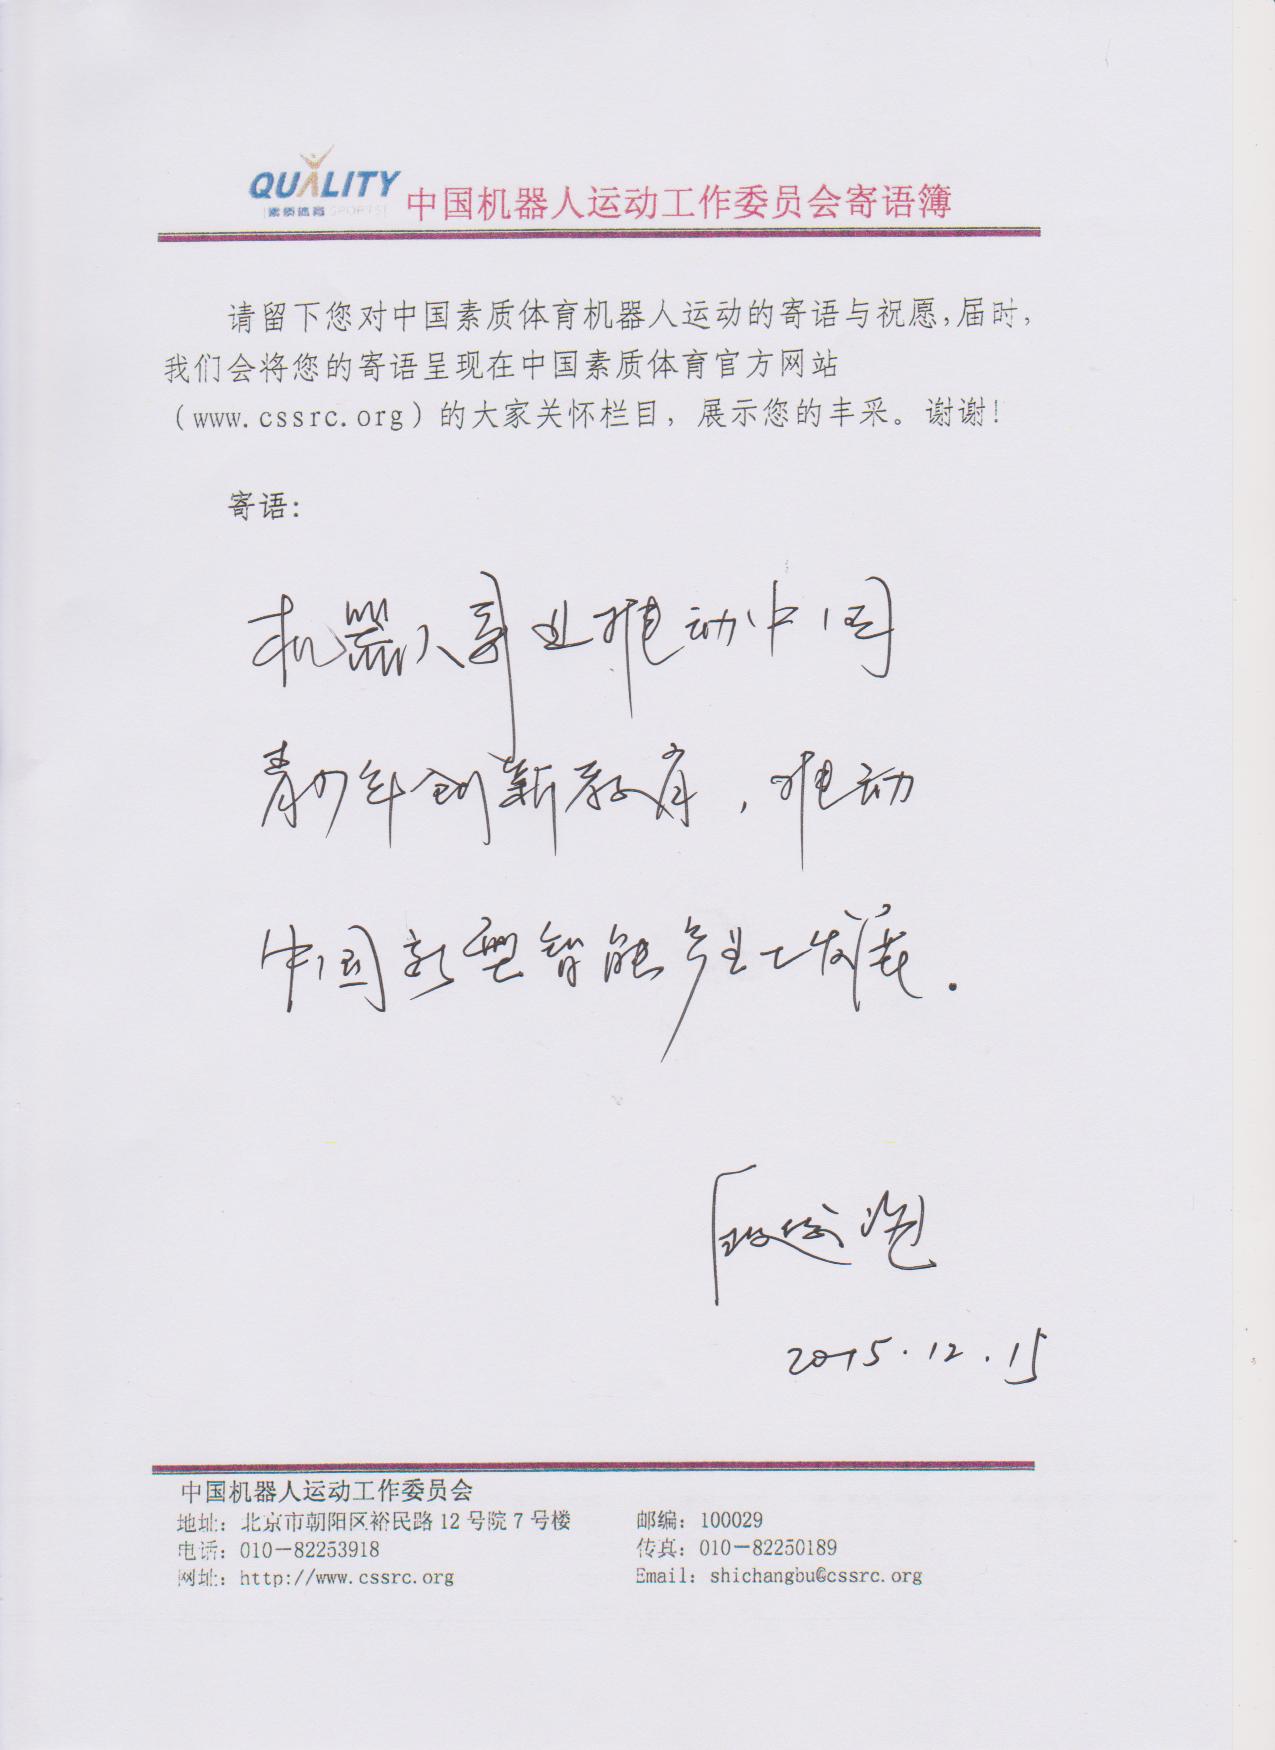 QUALITY
素质体育 SPORTS
中国机器人运动工作委员会寄语簿
请留下您对中国素质体育机器人运动的寄语与祝愿,届时,
我们会将您的寄语呈现在中国素质体育官方网站
(www.cssrc.org)的大家关怀栏目，展示您的丰采。谢谢!
寄语:
机器人事业推动中国
青少年创新教育，推动
中国新型智能产业发展.
段
2015.12.15
中国机器人运动工作委员会
地址: 北京市朝阳区裕民路12号院7号楼 邮编: 100029
电话: 010-82253918 传真: 010-82250189
网址: http://www.cssrc.org Email: shichangbu@cssrc.org